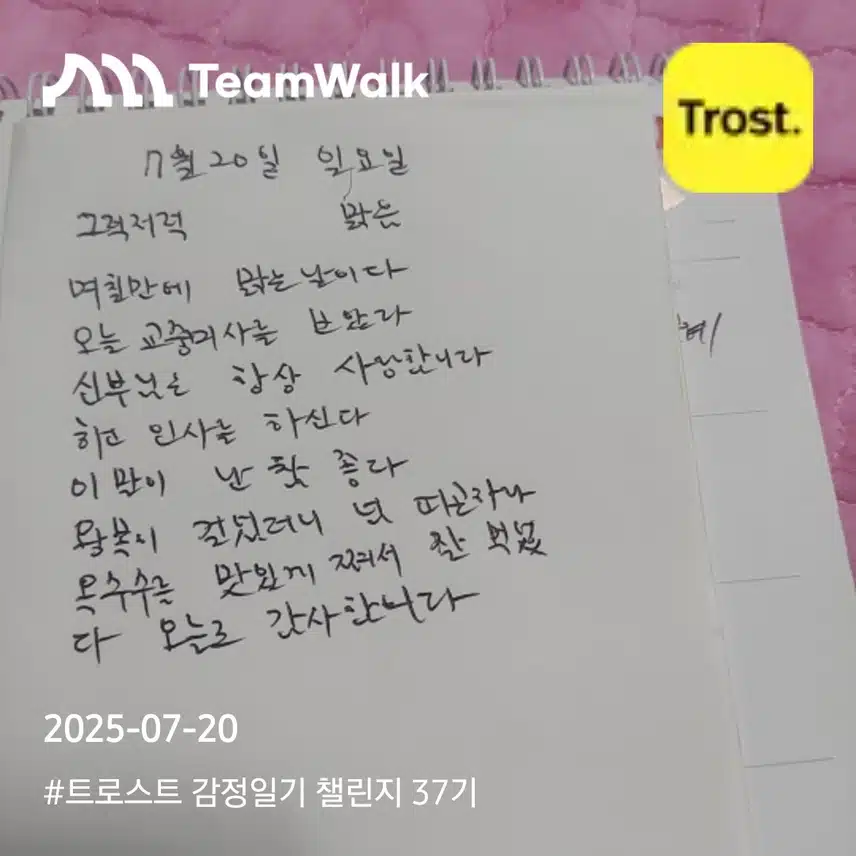 TeamWalk
Trost.
7월 20일 일요일
그럭저럭 맑음
며칠만에 맑는 날이다
오늘 교중미사를 보았다
신부님은 항상 사랑합니다
하고 인사를 하신다
이 말이 난 참 좋다
왕복이 걸었더니 넘 피곤하나
옥수수를 맛있게 쪄서 잘 먹었
다 오늘도 감사합니다
2025-07-20
#트로스트 감정일기 챌린지 37기